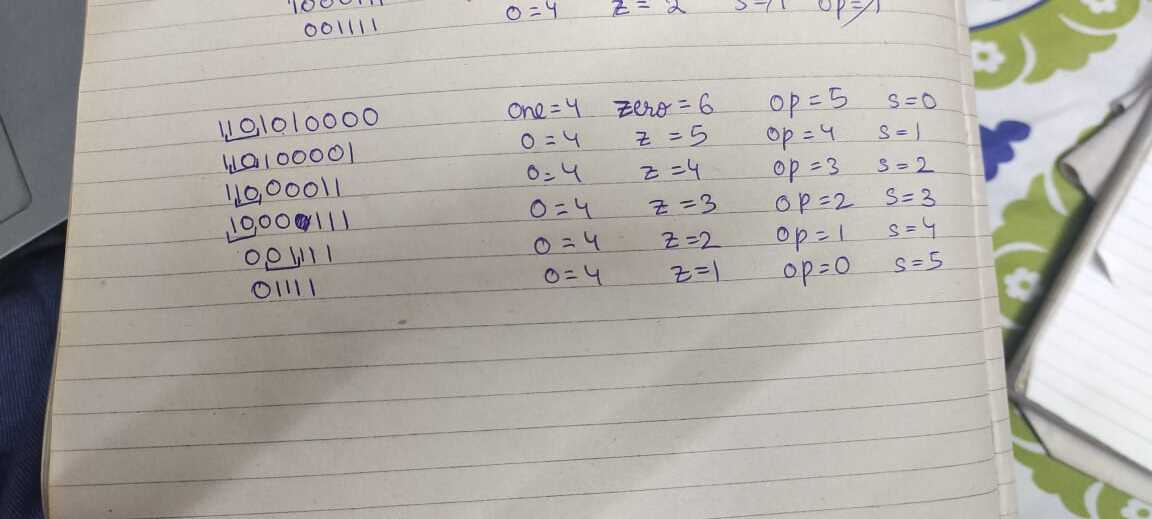 001111 0=4 z=2
1101010000 One=4 zero=6 op=5 s=0
110100001 0=4 z=5 op=4 s=1
11000011 0=4 z=4 op=3 s=2
1000111 0=4 z=3 op=2 s=3
001111 0=4 z=2 op=1 s=4
01111 0=4 z=1 op=0 s=5